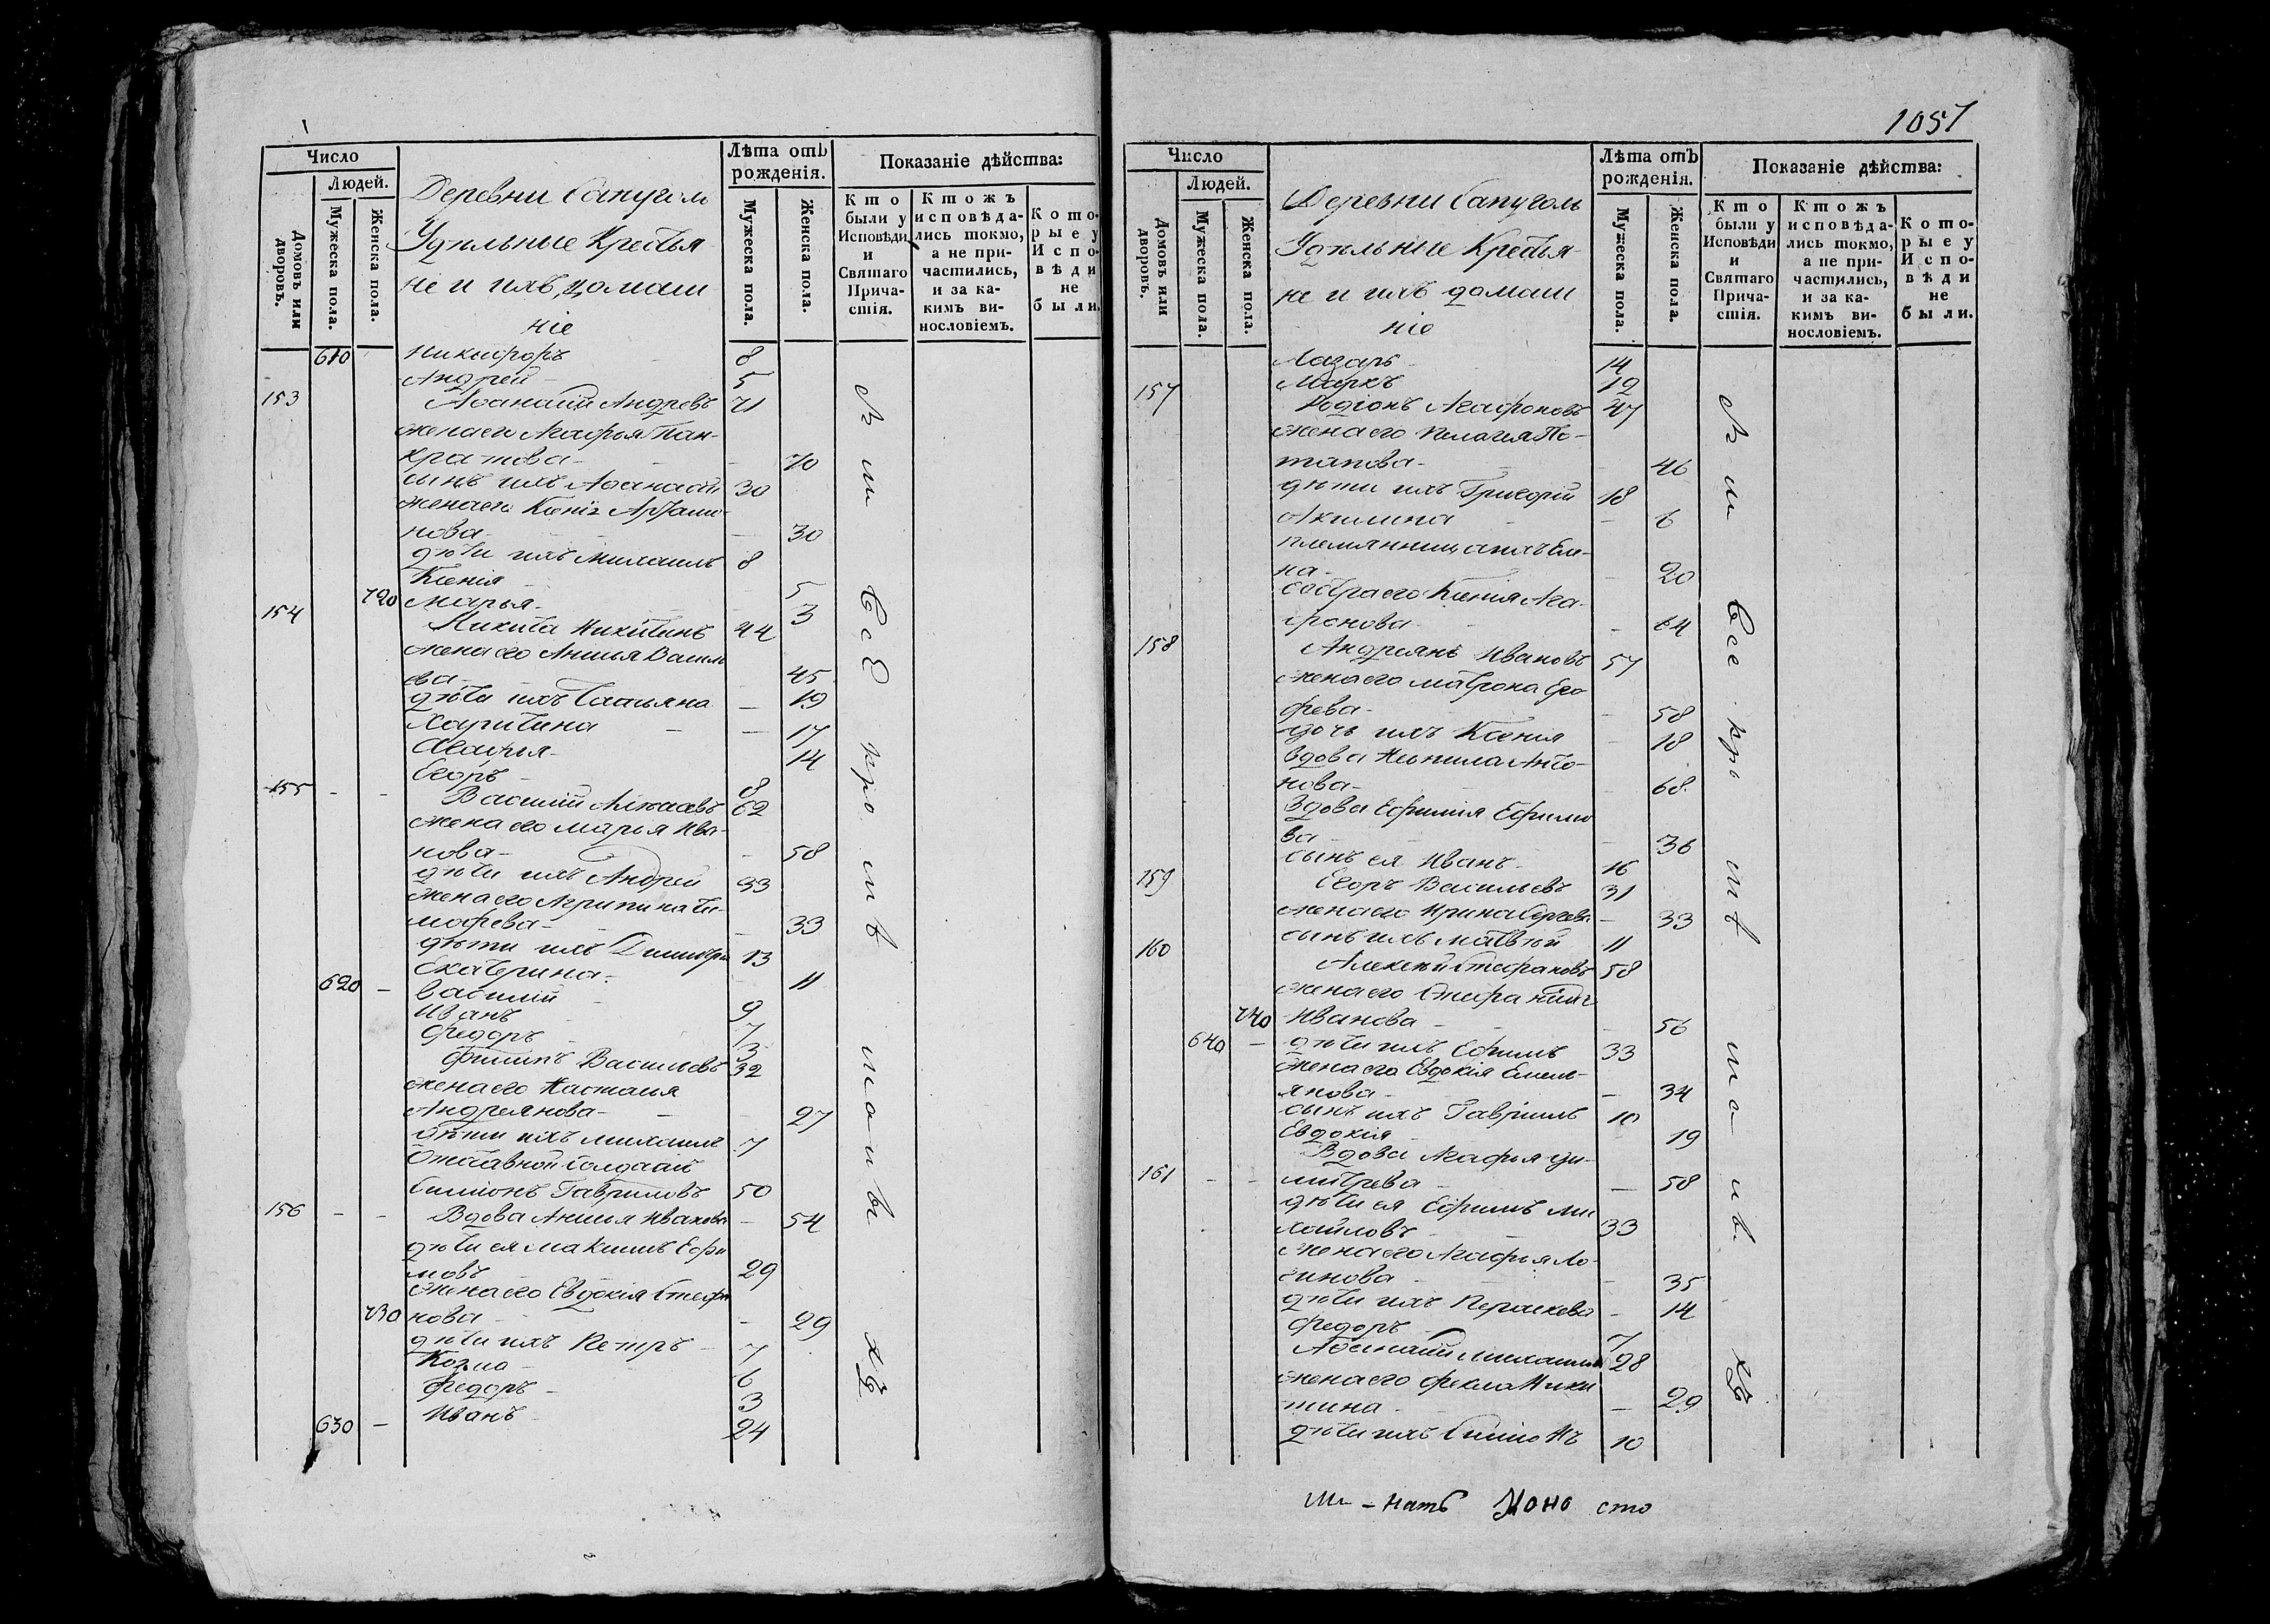 Число
Людей.
Домовъ или дворовъ.
Мужеска пола.
Женска пола.
Деревни Сапуголь
Удѣльные Крестья-
не и ихъ домаш
ніе
Лѣта отъ рожденія.
Мужеска пола.
Женска пола.
Показаніе дѣйства:
Кто были у Исповѣди и Святаго Причастія.
Ктожъ исповѣдались токмо, а не причастились, и за какимъ винословіемъ.
Которые у Исповѣди не были.
610 Никифоръ 8
Андрей 5
153 Афанасій Андревъ 71
жена его Агафья Пан-
кратова - 70
сынъ ихъ Афанасій 30
жена его Ксенія Артами
нова - 30
дѣти ихъ Михаилъ 8
Ксенія 5
720 Марья - 3
154 Никита Никитинъ 44
жена его Анисья Василь
ева - 45
дѣти ихъ Татьяна - 19
Харитина - 17
Агафья - 14
Егоръ 8
155 - - Василій Алексѣевъ 62
жена его Марья Ива-
нова - 58
дѣти ихъ Андрей 33
жена его Агрипина Ти-
мофева - 33
дѣти ихъ Димитрій 13
Екатерина - 11
620 - Василій 9
Иванъ 7
Федоръ 3
Филипъ Васильевъ 32
жена его Настасья
Андреянова - 27
дѣти ихъ Михаилъ 7
Отставной Солдатъ
Симіонъ Гавриловъ 50
156 - - Вдова Анисья Иванова - 54
дѣти ея Максимъ Ефи
мовъ 29
жена его Евдокія Стефа
730 нова - 29
дѣти ихъ Петръ - 7
Козма - 6
Федоръ - 3
630 - Иванъ - 24
1057
Число
Людей.
Домовъ или дворовъ.
Мужеска пола.
Женска пола.
Деревни Сапуголь
Удѣльные Крестья-
не и ихъ домаш
ніе
Лѣта отъ рожденія.
Мужеска пола.
Женска пола.
Показаніе дѣйства:
Кто были у Исповѣди и Святаго Причастія.
Ктожъ исповѣдались токмо, а не причастились, и за какимъ винословіемъ.
Которые у Исповѣди не были.
Лазарь 14
Маркъ 12
157 Родіонъ Агафоновъ 47
жена его Пелагея По-
тапова - 46
дѣти ихъ Григорій 18
Акилина - 6
племянница ихъ Еле-
на - 20
сестра его Ксенія Ага-
фонова - 64
158 Андреянъ Ивановъ 57
жена его Матрона Ево
фева - 58
дочь ихъ Ксенія 18
вдова Неонила Анто-
нова - 68
Вдова Ефимія Ефимо
ва - 36
сынъ ея Иванъ 16
159 Егоръ Васильевъ 31
жена его Ирина Сергева - 33
сынъ ихъ Матвѣй 11
160 Алексѣй Стефановъ 58
жена его
740 Иванова - 56
640 - дѣти ихъ Ефимъ 33
жена его Евдокія Емель-
янова - 34
сынъ ихъ Гавріилъ 10
Евдокія 19
Вдова Агафья Ди-
161 - - митрева - 58
дѣти ея Ефимъ Ми
хайловъ 33
жена его Агафья Ло-
гинова - 35
дѣти ихъ Перасковья - 14
Федоръ 7
Афанасій Михаиловъ 28
жена его Фекла Ники
тина - 29
дѣти ихъ Симіонъ 10